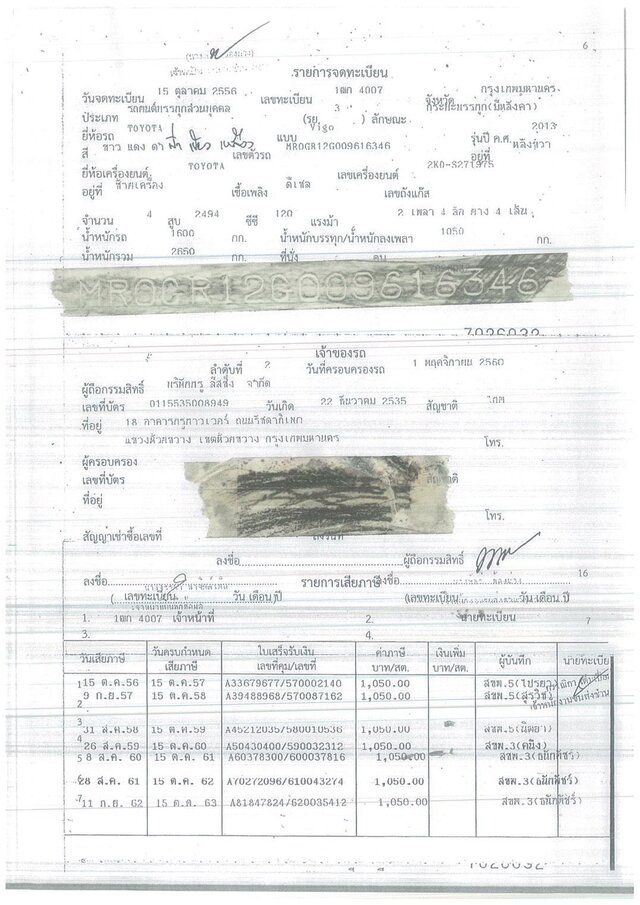 6
รายการจดทะเบียน
วันจดทะเบียน 15 ตุลาคม 2556 เลขทะเบียน 1ฒก 4007 จังหวัด กรุงเทพมหานคร
ประเภท รถยนต์บรรทุกส่วนบุคคล (รย. 3 ) ลักษณะ กระบะบรรทุก(มีหลังคา)
ยี่ห้อรถ TOYOTA แบบ Vigo รุ่นปี ค.ศ. 2013
สี ขาว แดง ดำ ฟ้า เขียว เหลือง เลขตัวรถ MROGR12G009616346 อยู่ที่
ยี่ห้อเครื่องยนต์ TOYOTA เลขเครื่องยนต์ 2KD-S271975
อยู่ที่ ซ้ายเครื่อง เชื้อเพลิง ดีเซล เลขถังแก๊ส
จำนวน 4 สูบ 2494 ซีซี 120 แรงม้า 2 เพลา 4 ล้อ ยาง 4 เส้น
น้ำหนักรถ 1600 กก. น้ำหนักบรรทุก/น้ำหนักลงเพลา 1050 กก.
น้ำหนักรวม 2650 กก. ที่นั่ง คน
MROGR12G009616346
7026032
เจ้าของรถ
ลำดับที่ 2 วันที่ครอบครองรถ 1 พฤศจิกายน 2560
ผู้ถือกรรมสิทธิ์ บริษัทกรุ๊ปลีสซิ่ง จำกัด
เลขที่บัตร 0115535008949 วันเกิด 22 ธันวาคม 2535 สัญชาติ ไทย
ที่อยู่ 18 อาคารกรุงเทาเวอร์ ถนนรัชดาภิเษก
แขวงห้วยขวาง เขตห้วยขวาง กรุงเทพมหานคร โทร.
ผู้ครอบครอง
เลขที่บัตร สัญชาติ
ที่อยู่
โทร.
สัญญาเช่าซื้อเลขที่
ลงชื่อ ผู้ถือกรรมสิทธิ์
ลงชื่อ รายการเสียภาษี ลงชื่อ 16
( เลขทะเบียน วัน เดือน ปี (เลขทะเบียน วัน เดือน ปี
1. 1ฒก 4007 เจ้าหน้าที่ 2. นายทะเบียน 7
3. 4.
วันเสียภาษี วันครบกำหนดเสียภาษี ใบเสร็จรับเงิน เลขที่คุม/เลขที่ ค่าภาษี บาท/สต. เงินเพิ่ม บาท/สต. ผู้บันทึก นายทะเบียน
1 15 ต.ค.56 15 ต.ค.57 A33679677/570002140 1,050.00 สขพ.5
2 9 ก.ย.57 15 ต.ค.58 A39488968/570087162 1,050.00 สขพ.5
3 31 ส.ค.58 15 ต.ค.59 A45212035/580010536 1,050.00 สขพ.5(นิตยา)
4 26 ส.ค.59 15 ต.ค.60 A50430400/590032312 1,050.00 สขพ.3
5 8 ส.ค. 60 15 ต.ค. 61 A60378300/600037816 1,050.00 สขพ.3(ธนักพัชร์)
6 28 ส.ค. 61 15 ต.ค. 62 A70272096/610043274 1,050.00 สขพ.3(ธนักพัชร์)
7 11 ก.ย. 62 15 ต.ค. 63 A81847824/620035412 1,050.00 สขพ.3(ธนักพัชร์)
7026032